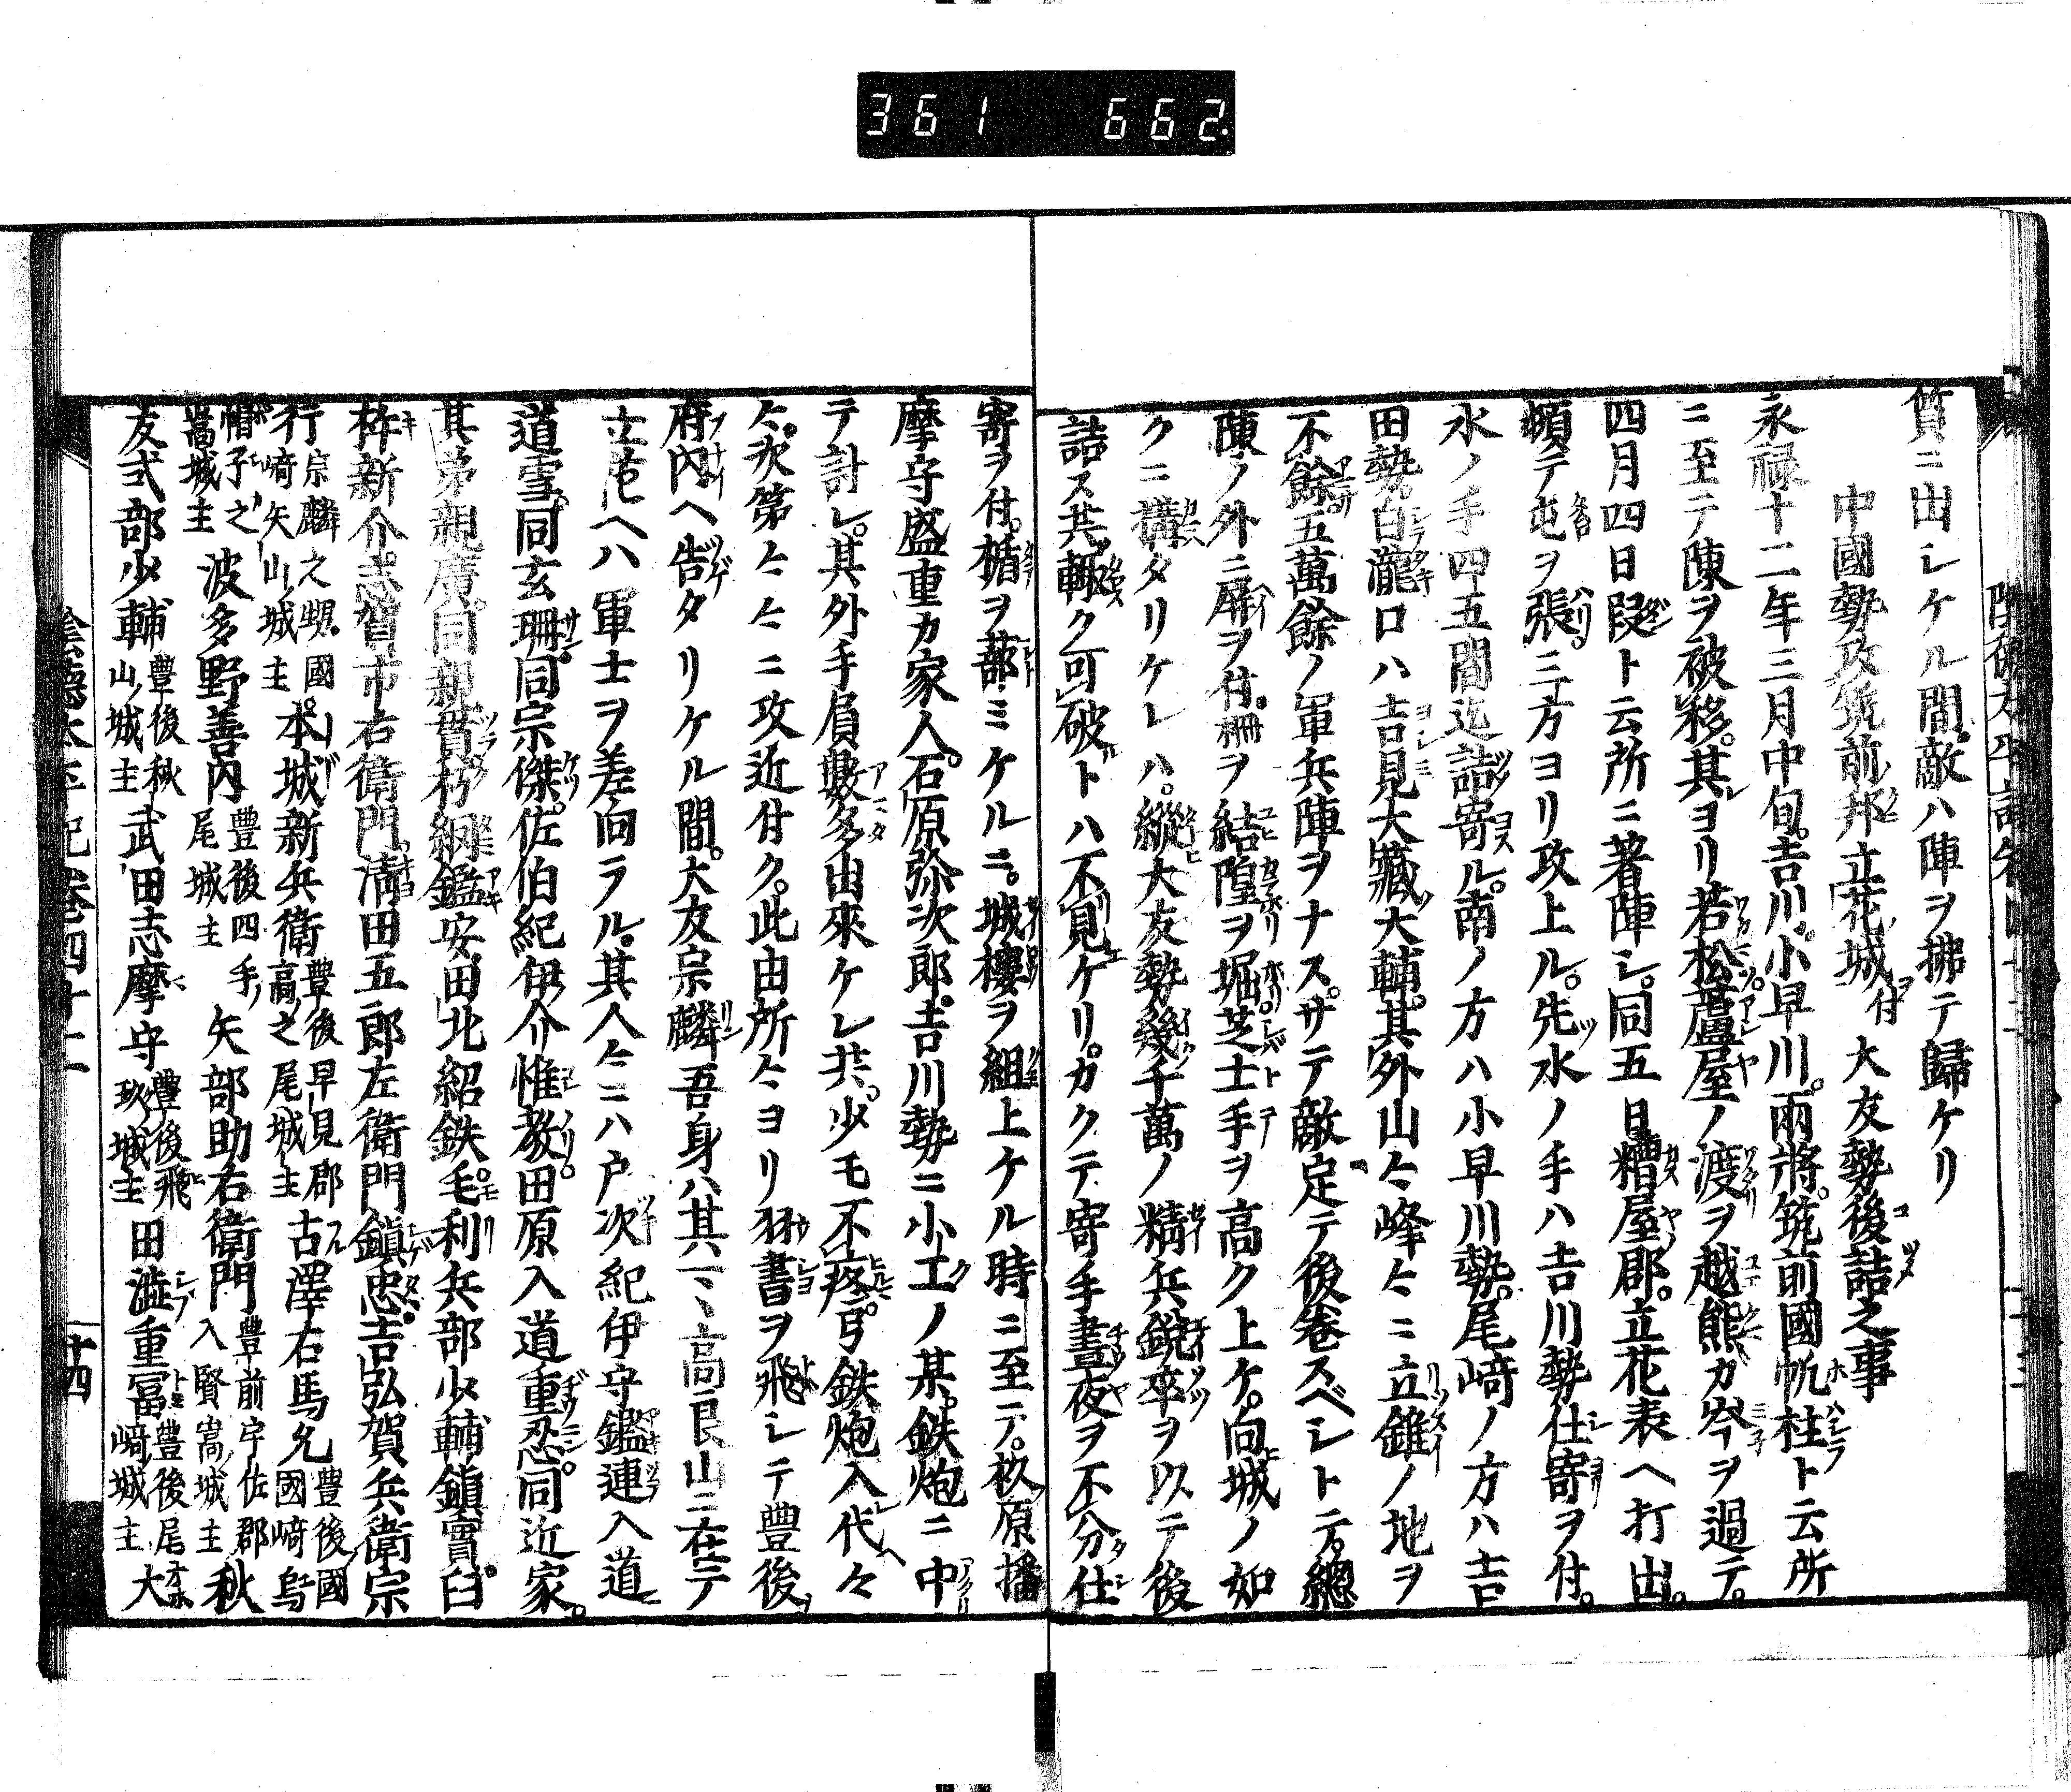 361 662
質ニ出シケル間。敵ハ陣ヲ拂テ歸ケリ
中國勢攻筑前ノ邦立花ノ城ヲ付大友勢後詰之事
永禄十二年三月中旬。吉川。小早川。兩將。筑前國帆柱ト云所
ニ至テ陳ヲ被移。其ヨリ若松蘆屋ノ渡ヲ越熊カ岑ヲ過テ。
四月四日段ト云所ニ著陣シ。同五日糟屋郡。立花表ヘ打出。
頻テ屯ヲ張。三方ヨリ攻上ル。先水ノ手ハ吉川勢仕寄ヲ付。
水ノ手四五間迄詰寄ル。南ノ方ハ小早川勢。尾﨑ノ方ハ吉
田勢。白瀧口ハ吉見大藏大輔。其外山々峰々ニ立錐ノ地ヲ
不餘。五萬餘ノ軍兵陣ヲナス。サテ敵定テ後巻スベシトテ。總
陳ノ外ニ屏ヲ付。柵ヲ結隍ヲ堀芝士手ヲ高ク上ケ。向城ノ如
クニ構タリケレハ。縱大友勢幾千萬ノ精兵鋭卒ヲ以テ後
詰ス共。輙ク可破トハ不見ケリ。カクテ寄手晝夜ヲ不分仕
寄ヲ付。楯ヲ蔀ミケルニ。城樓ヲ組上ケル時ニ至テ。杦原播
摩守盛重カ家人。石原弥次郎。吉川勢ニ小工ノ某。鉄炮ニ中
テ計レ。其外手負數多由來ケレ共。少モ不疼。弓鉄炮入代々
々。次第々々ニ攻近付ク。此由所々ヨリ羽書ヲ飛シテ豊後ノ
府内ヘ告タリケル間。大友宗麟吾身ハ其一々高良山ニ在テ
立花ヘハ軍士ヲ差向ラル。其人々ニハ戸次紀伊守鑑連入道
道雪。同玄珊。同宗傑。佐伯紀伊介惟教。田原入道重忍。同近家。
其弟親廣。同親貫朽網鑑安田北紹鉄。毛利兵部少輔鎮實。臼
杵新介。志賀市右衛門。清田五郎左衛門鎮忠。吉弘賀兵衛宗
行宗麟之甥。國﨑矢山ノ城主本城新兵衛豊後早見郡高之尾城主古澤右馬允豊後國國﨑烏
帽子之嵩城主波多野善内豊後四手ノ尾城主矢部助右衛門豊前宇佐郡入賢嵩ノ城主秋
友式部少輔豊後秋山ノ城主武田志摩守豊後飛玖ノ城主田澁重冨豊後尾﨑ノ城主大
陰德太平記卷四十二
廿四